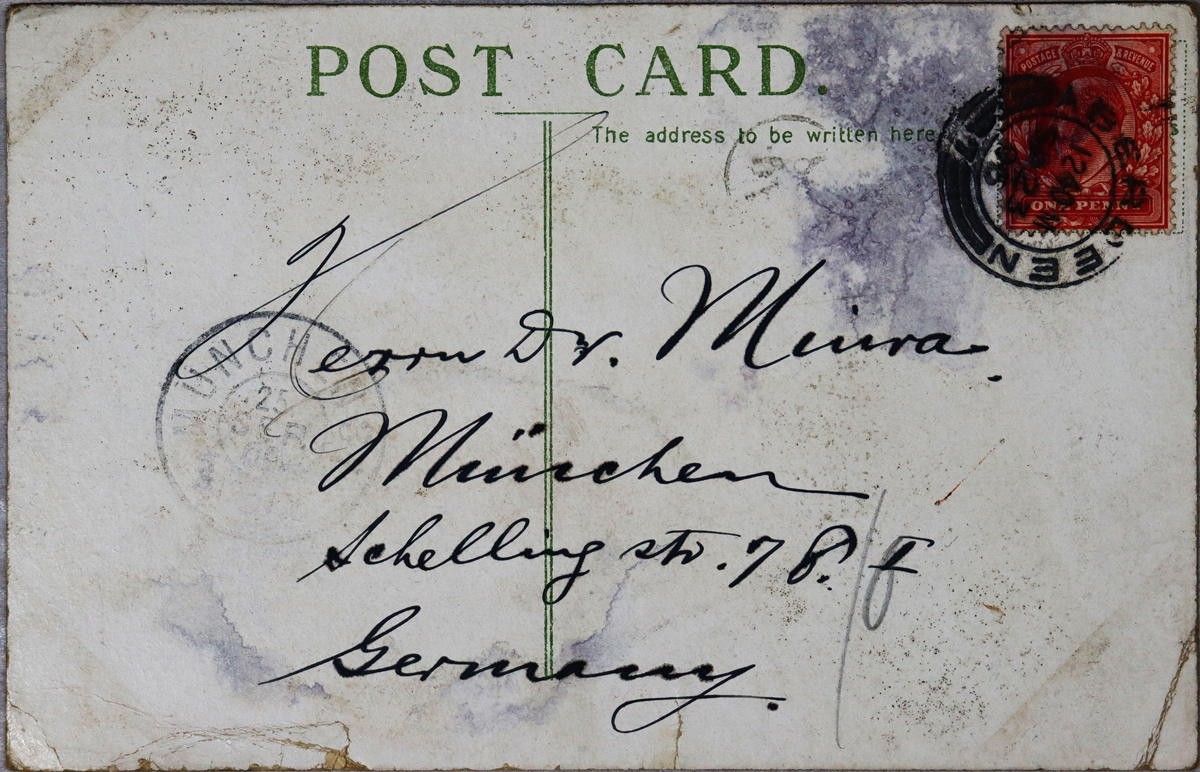 POST CARD.
The address to be written here
POSTAGE & REVENUE
ONE PENNY
Herrn Dr. Miura.
München
Schelling str. 78. I
Germany.
MÜNCHEN
25